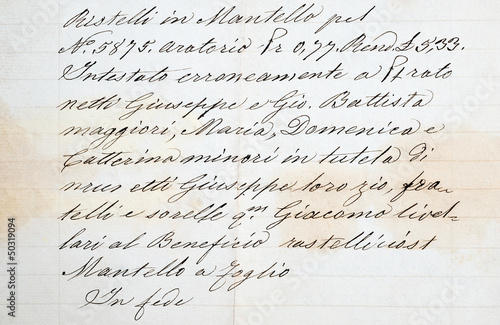 Rastelli in Mantello pel
N.º 5875. aratorio Pr 0,77. Rend. £ 5,33.
Intestato erroneamente a Strato
netti Giuseppe e Gio. Battista
maggiori, Maria, Domenica e
Catterina minori in tutela di
etti Giuseppe loro zio, fra-
telli e sorelle qm Giacomo livel-
lari al Beneficio rastelli
Mantello a foglio
In fede
Adobe Stock | #50319094